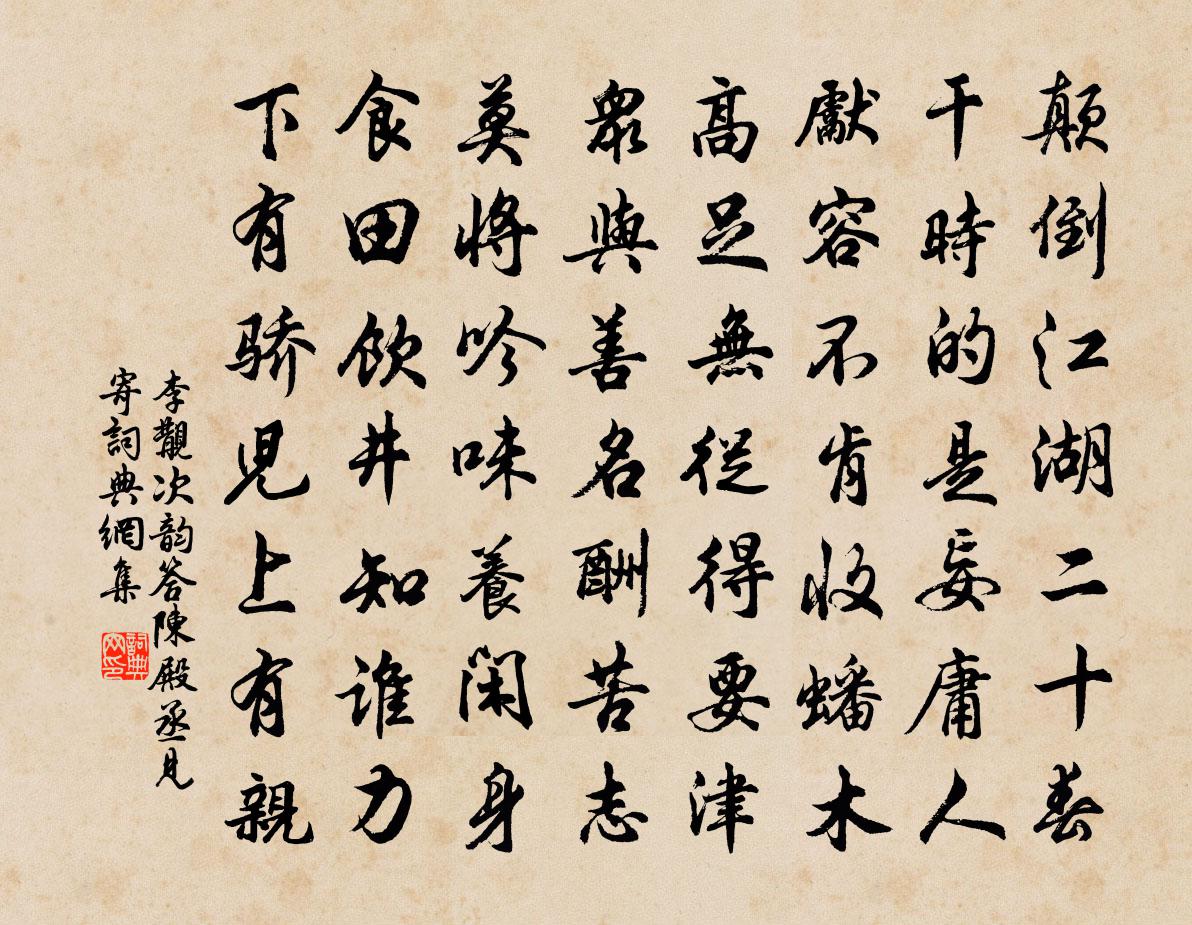 顛倒江湖二十春
干時的是妄庸人
獻容不肯收蟠木
高足無從得要津
衆與善名酬苦志
莫將吟味養閑身
食田飲井知誰力
下有骄児上有親
李覯次韵答陳殿丞見
寄詞典網集
詞典网印